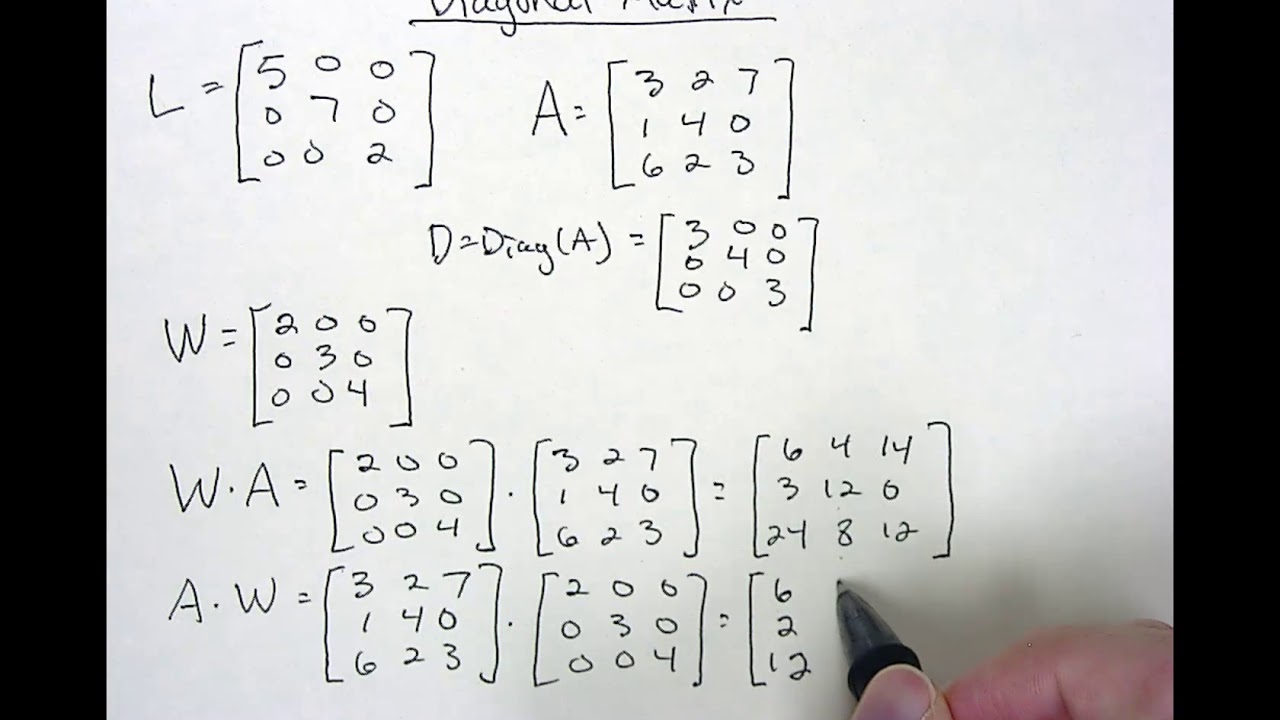 Diagonal Matrix
L = [5 0 0
0 7 0
0 0 2]
A = [3 2 7
1 4 0
6 2 3]
D = Diag(A) = [3 0 0
0 4 0
0 0 3]
W = [2 0 0
0 3 0
0 0 4]
W · A = [2 0 0
0 3 0
0 0 4] · [3 2 7
1 4 0
6 2 3] = [6 4 14
3 12 0
24 8 12]
A · W = [3 2 7
1 4 0
6 2 3] · [2 0 0
0 3 0
0 0 4] = [6
2
12